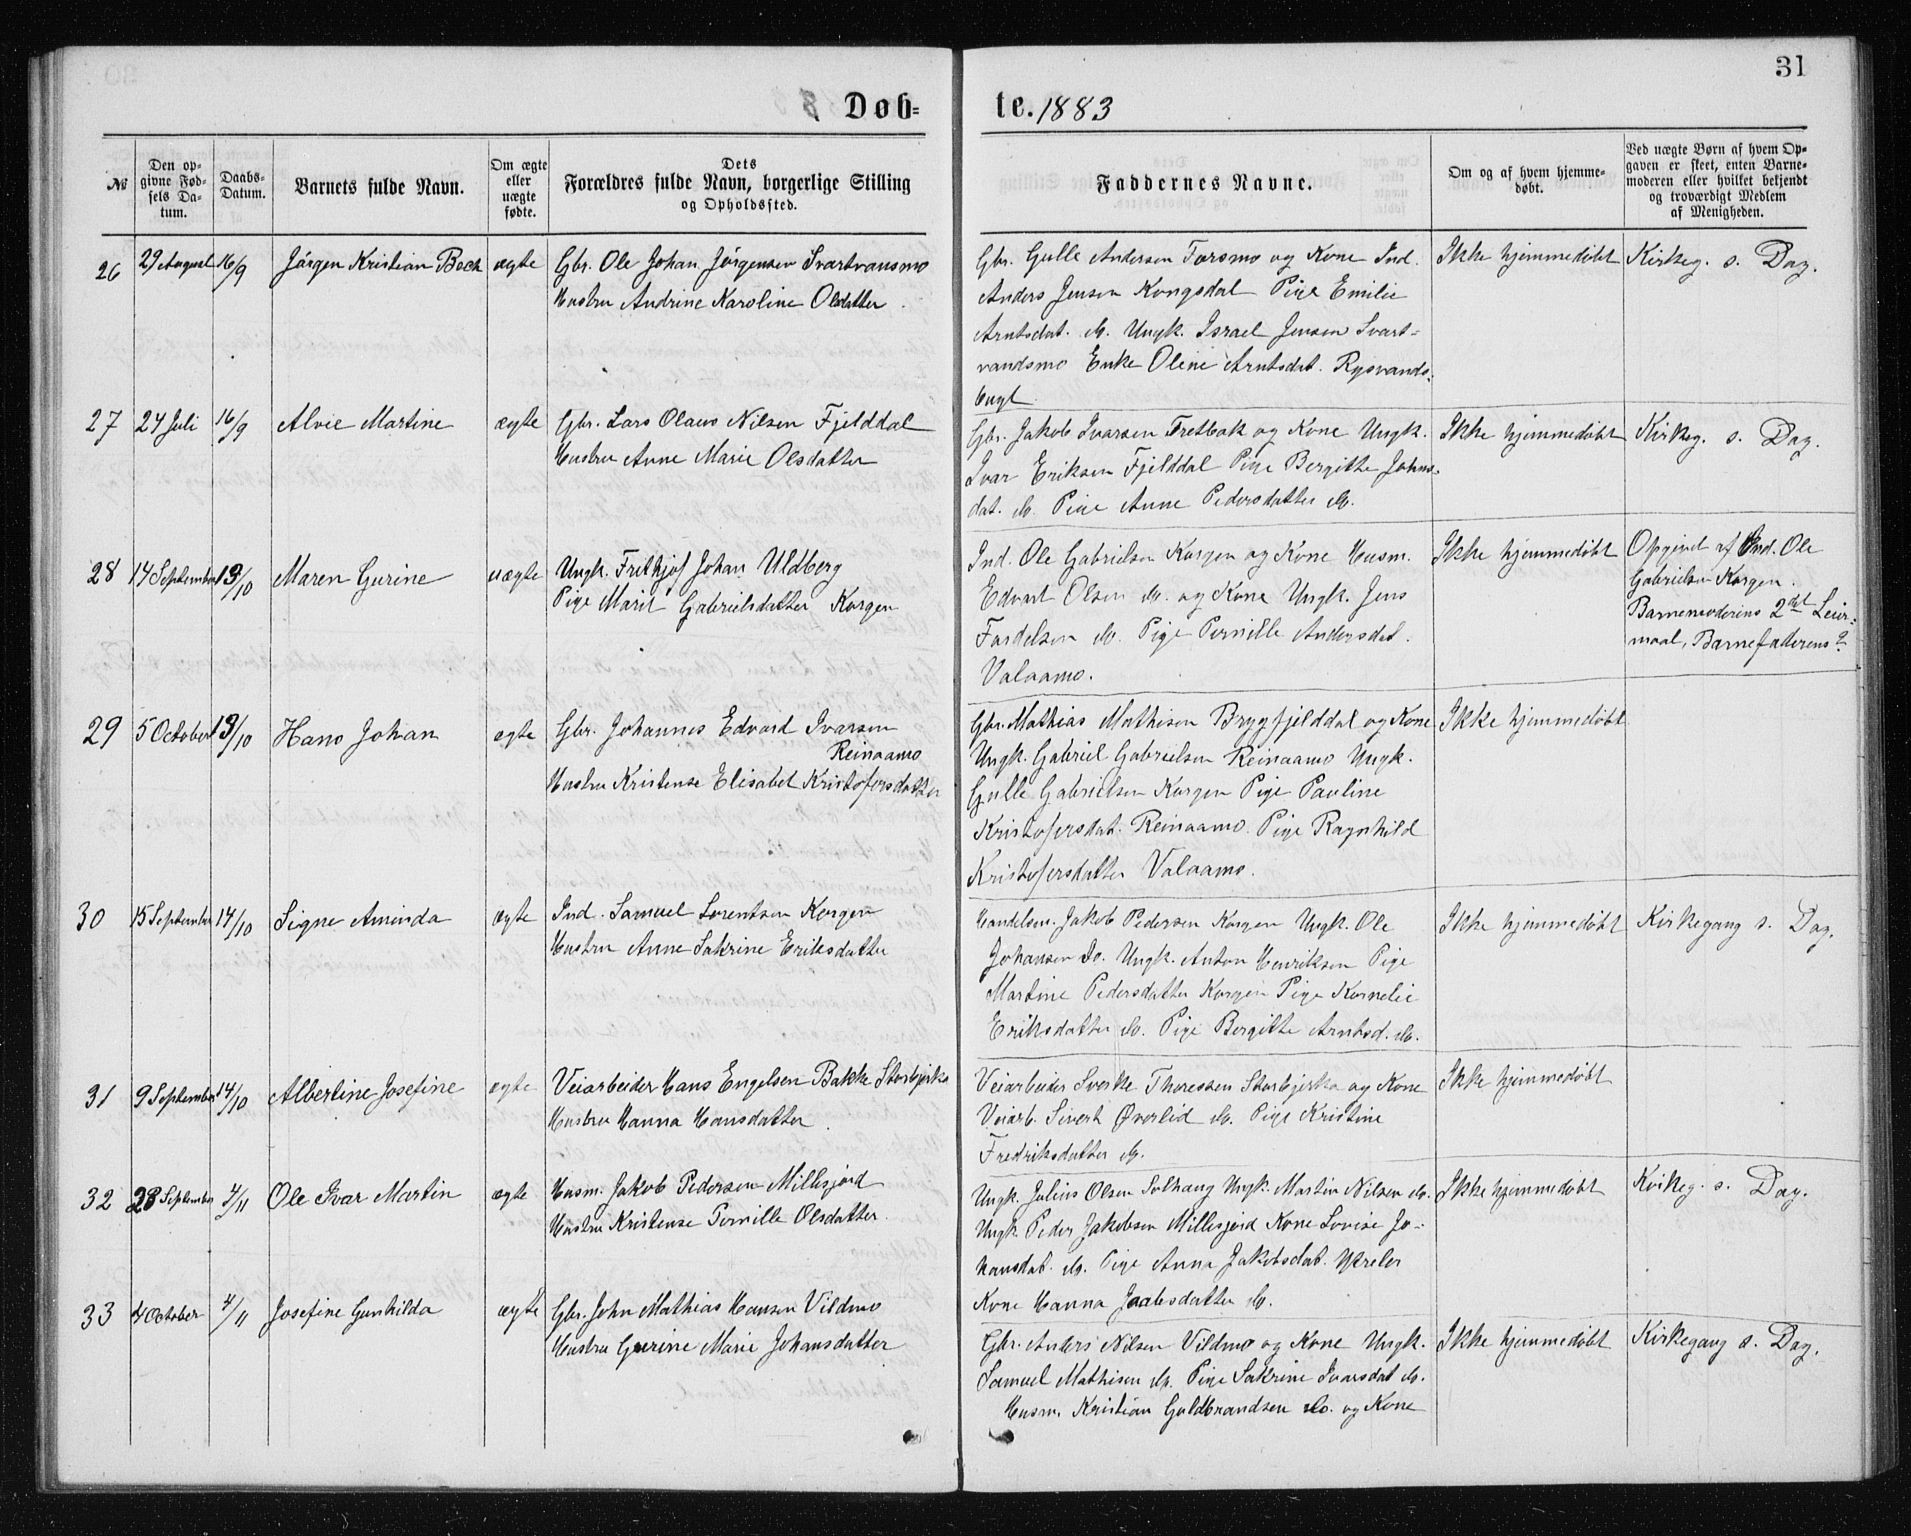 31
Døb=
te. 1883
№
Den op-
givne Fød-
sels Da-
tum.
Daabs-
Datum.
Barnets fulde Navn.
Om ægte
eller
uægte
fødte.
Dets
Forældres fulde Navn, borgerlige Stilling
og Opholdssted.
Faddernes Navne.
Om og af hvem hjemme-
døbt.
Ved uægte Børn af hvem Op-
gaven er skeet, enten Barne-
moderen eller hvilket bekjendt
og troværdigt Medlem
af Menigheden.
26 29 August 16/9 Jørgen Kristian Beck ægte
Gbr. Ole Johan Jørgensen Svartvansmo
Hustru Andrine Karoline Olsdatter.
Gbr. Gulle Andersen Forsmo og Kone Ind.
Anders Jensen Kongsdal Pige Emilie
Arntsdat. do. Ungk. Israel Jensen Svart-
vandsmo Enke Oline Arntsdat. Rysvands-
bugt
Ikke hjemmedøbt
Kirkeg. s. Dag.
27 24 Juli 16/9 Alvie Martine ægte
Gbr. Lars Olaus Nilsen Fjelddal
Hustru Anne Marie Olsdatter
Gbr. Jakob Ivarsen Tretbak og Kone Ungk.
Ivar Eriksen Fjelddal Pige Bergitte Johns-
dat. do. Pige Anne Pedersdatter do.
Ikke hjemmedøbt
Kirkeg. s. Dag.
28 14 September 13/10 Maren Gurine uægte
Ungk. Frithjof Johan Uldberg
Pige Marit Gabrielsdatter Korgen
Ind. Ole Gabrielsen Korgen og Kone Husm.
Edvart Olsen do. og Kone Ungk. Jens
Fordelsen do. Pige Pernille Andersdat.
Valaamo.
Ikke hjemmedøbt
Opgivet af Ind. Ole
Gabrielsen Korgen.
Barnemoderens 2det Leier-
maal, Barnefaderens ?
29 5 October 13/10 Hans Johan ægte
Gbr. Johannes Edvard Ivarsen
Reinaamo
Hustru Kristense Elisabet Kristofersdatter
Gbr. Mathias Mathisen Brygfjelddal og Kone
Ungk. Gabriel Gabrielsen Reinaamo Ungk.
Gulle Gabrielsen Korgen Pige Pauline
Kristofersdat. Reinaamo. Pige Ragnhild
Kristofersdatter Valaamo.
Ikke hjemmedøbt
30 15 September 14/10 Signe Aminda ægte
Ind. Samuel Lorentsen Korgen
Hustru Anne Sakrine Eriksdatter
Handelsm. Jakob Pedersen Korgen Ungk. Ole
Johansen Do. Ungk. Anton Henriksen Pige
Martine Pedersdatter Korgen Pige Kornelie
Eriksdatter do. Pige Bergitte Arntsd. do.
Ikke hjemmedøbt
Kirkegang s. Dag.
31 9 September 14/10 Albertine Josefine ægte
Veiarbeider Hans Engelsen Bakke Storbjerka
Hustru Hanna Hansdatter.
Veiarbeider Sverke Thoressen Storbjerka og Kone
Veiarb. Sivert Øverlid do. Pige Kristine
Fredriksdatter do.
Ikke hjemmedøbt
32 28 September 4/11 Ole Ivar Martin ægte
Husm. Jakob Pedersen Millesjord
Hustru Kristense Pernille Olsdatter.
Ungk. Julius Olsen Solhaug Ungk. Martin Nilsen do.
Ungk. Peder Jakobsen Millesjord Kone Lovise Jo-
hansdat. do. Pige Anna Jakobsdat.
Kone Hanna do.
Ikke hjemmedøbt
Kirkeg. s. Dag.
33 4 October 4/11 Josefine Gunhilda ægte
Gbr. John Mathias Hansen Vildmo
Hustru Gurine Marie Johansdatter
Gbr. Anders Nilsen Vildmo og Kone Ungk.
Samuel Mathisen do. Pige Sakrine Ivarsdat do.
Husm. Kristian Guldbrandsen do. og Kone
Ikke hjemmedøbt
Kirkegang s. Dag.